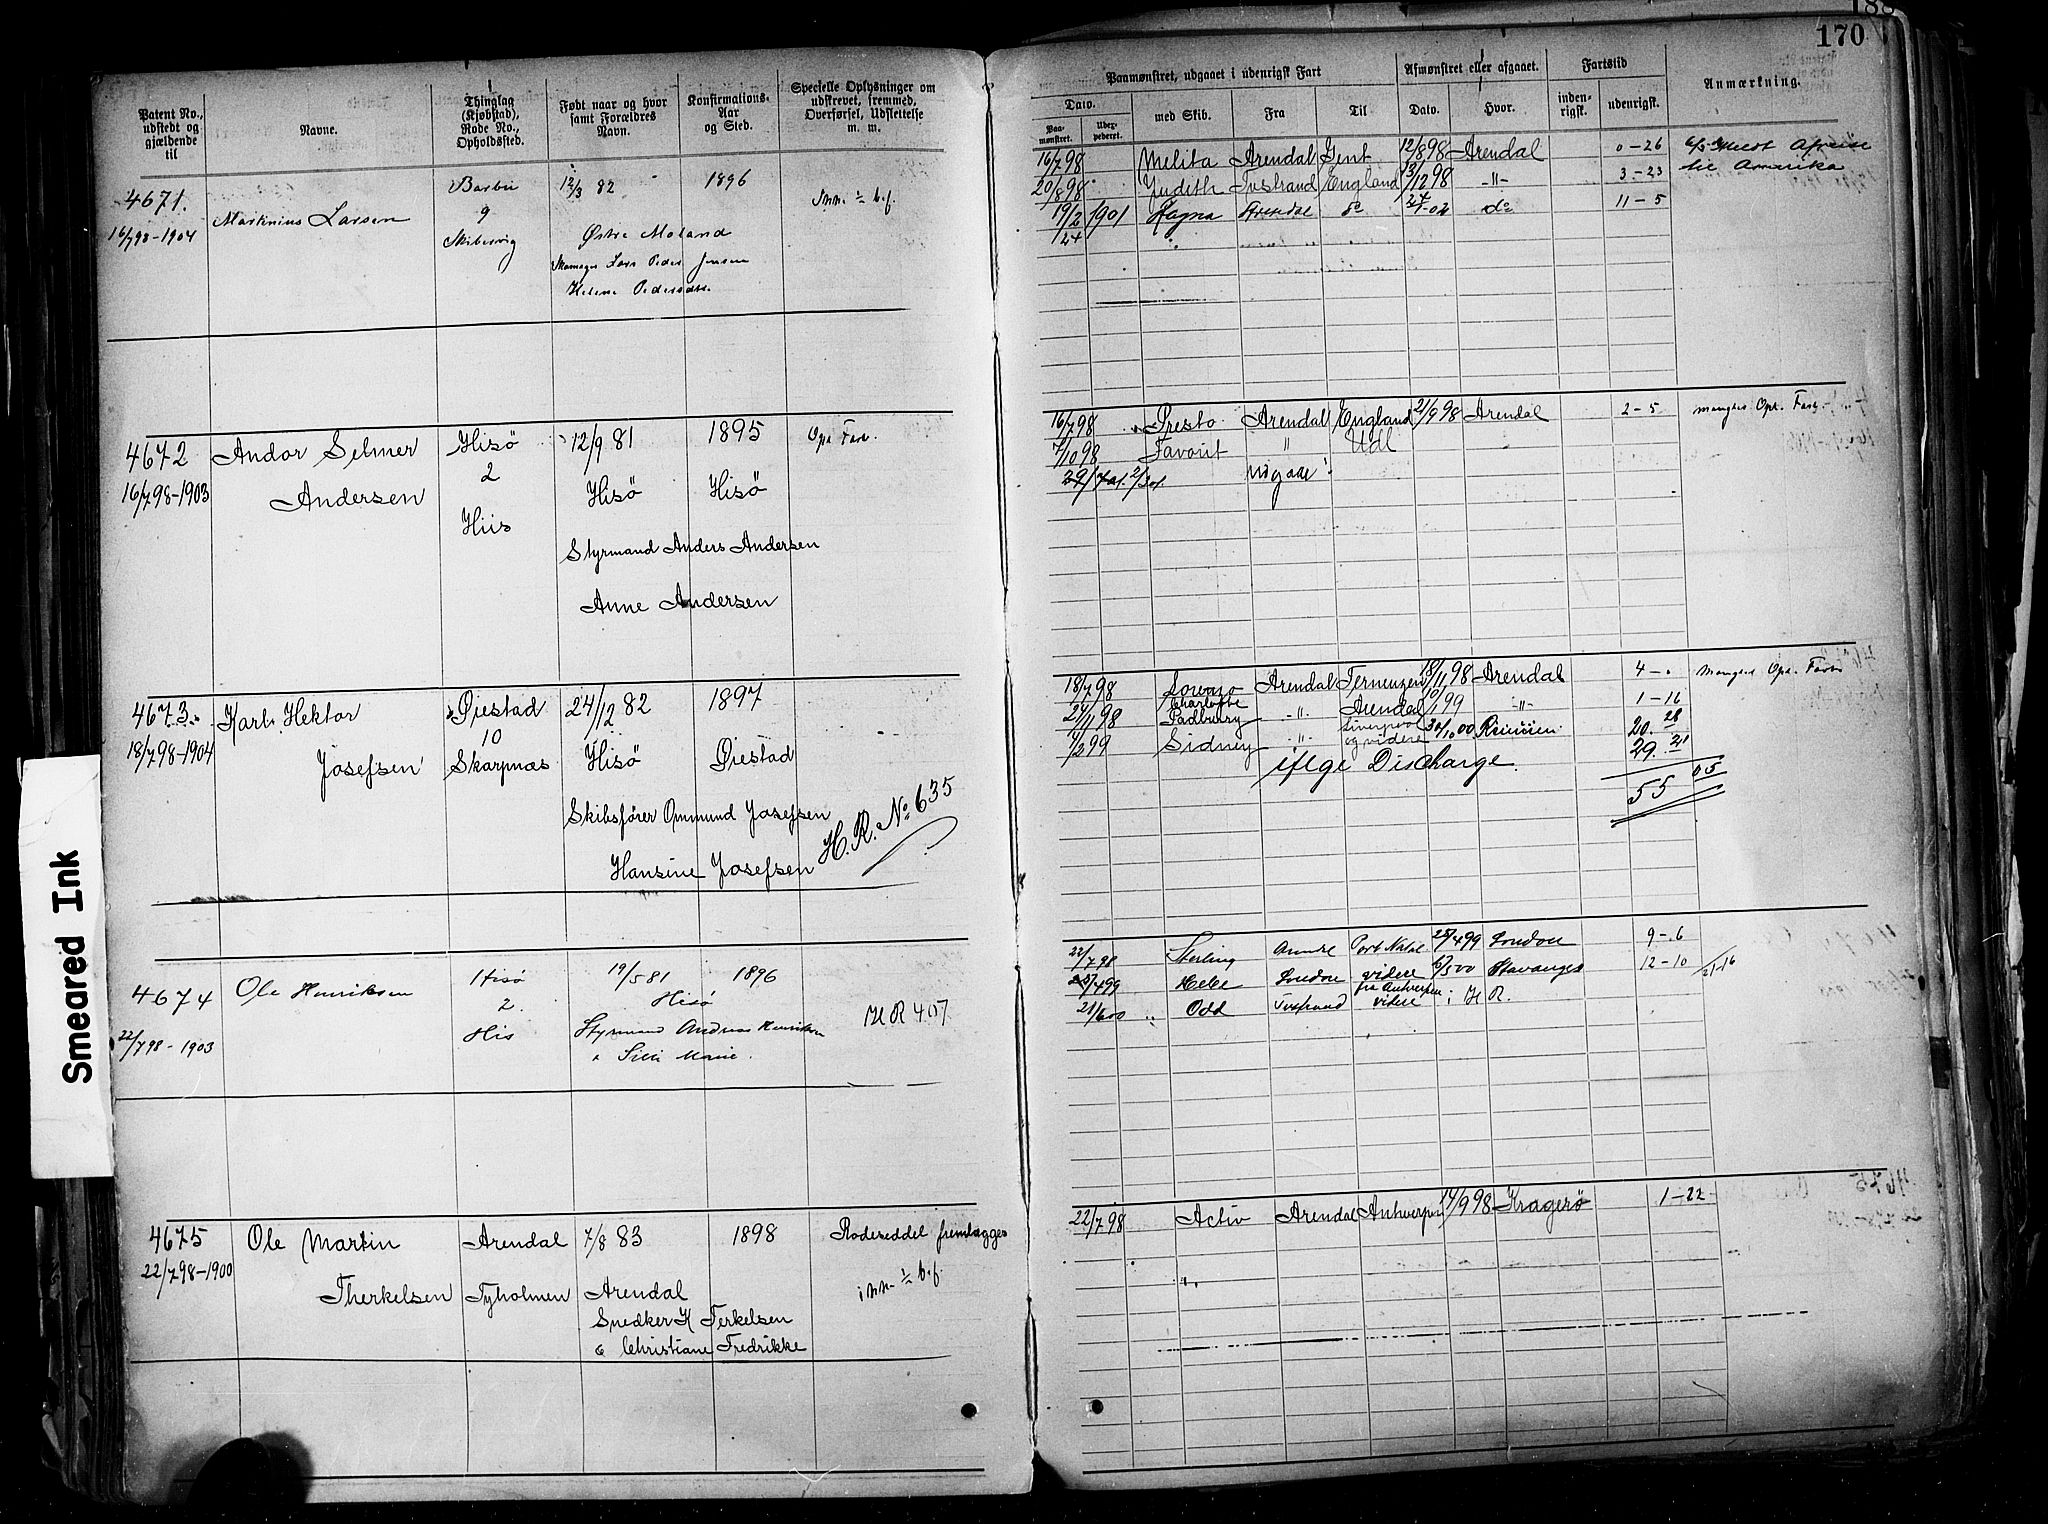 188
170
Patent No., udstedt og gjældende til
Navne.
Thinglag (Kjøbstad), Rode No., Opholdssted.
Født naar og hvor samt Forældres Navn.
Konfirmations-Aar og Sted.
Specielle Oplysninger om udskrevet, fremmed, Overførsel, Udslettelse m. m.
Paamønstret, udgaaet i udenrigsk Fart
Afmønstret eller afgaaet.
Fartstid
Anmærkning.
Dato.
med Skib.
Fra
Til
Dato.
Hvor.
inden-rigsk.
udenrigsk.
Paa-mønstret.
Udex-pederet.
4671.
16/7 98-1904
Martinius Larsen
Barbu
9
12/3 82
1896
Østre Moland
Lars Peder Jensen
Helene
16/7 98 Melita Arendal Gent 12/8 98 Arendal 0-26
til Amerika
20/8 98 Judith Tvestrand England 3/12 98 -"- 3-23
19/2 1901 Arendal do do 11-5
4672
16/7 98-1903
Andor Selmer
Andersen
Hisö
2
Hiis
12/9 81
Hisö
1895
Hisö
Styrmand Anders Andersen
Anne Andersen
Opl. Farb.
16/7 98 Presto Arendal England 21/9 98 Arendal 2-5 mangler Opl. Farb.
7/10 98 Favorit " Udl
udgaae
4673.
18/7 98-1904
Karl Hektor
Josefsen
Øiestad
10
Skarpnæs
24/12 82
Hisö
1897
Øiestad
Skibsfører Ommund Josefsen
Hansine Josefsen
H. R. No 635
18/7 98 Lorenzo Arendal Terneuzen 18/11 98 Arendal 4-. mangler Opl. Farb.
24/11 98 Charlotte Padbury -"- Arendal -"- 1-16
4/2 99 Sidney -"- Liverpool og videre 30/10 00 20. 28
iflge Discharge. 29. 21
55 05
4674
22/7 98-1903
Ole Henriksen
Hisö
2.
His
19/5 81
Hisö
1896
Styrmand Andreas Henriksen
Marie.
HR 407
22/7 98 Sterling Port Natal 25/4 99 London 9-6
25/4 99 Hebe London videre 6/5 00 Stavanger 12-10 21-16
fra Antwerpen
21/6 00 Odd Tvestrand videre i HR.
4675
22/7 98-1900
Ole Martin
Therkelsen
Arendal
Tyholmen
7/8 83
Arendal
1898
Snedker K Terkelsen
& Christiane Fredrikke
Rodeseddel fremlægges
22/7 98 Activ Arendal Antwerpen 14/9 98 Kragerø 1-22
Smeared Ink